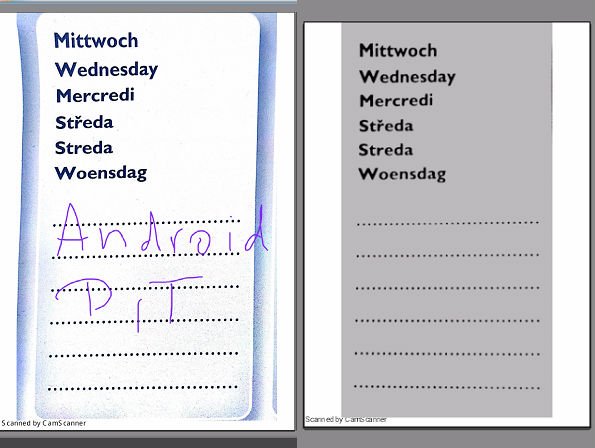 Mittwoch
Wednesday
Mercredi
Středa
Streda
Woensdag
Android
PiT
Scanned by CamScanner
Mittwoch
Wednesday
Mercredi
Středa
Streda
Woensdag
Scanned by CamScanner